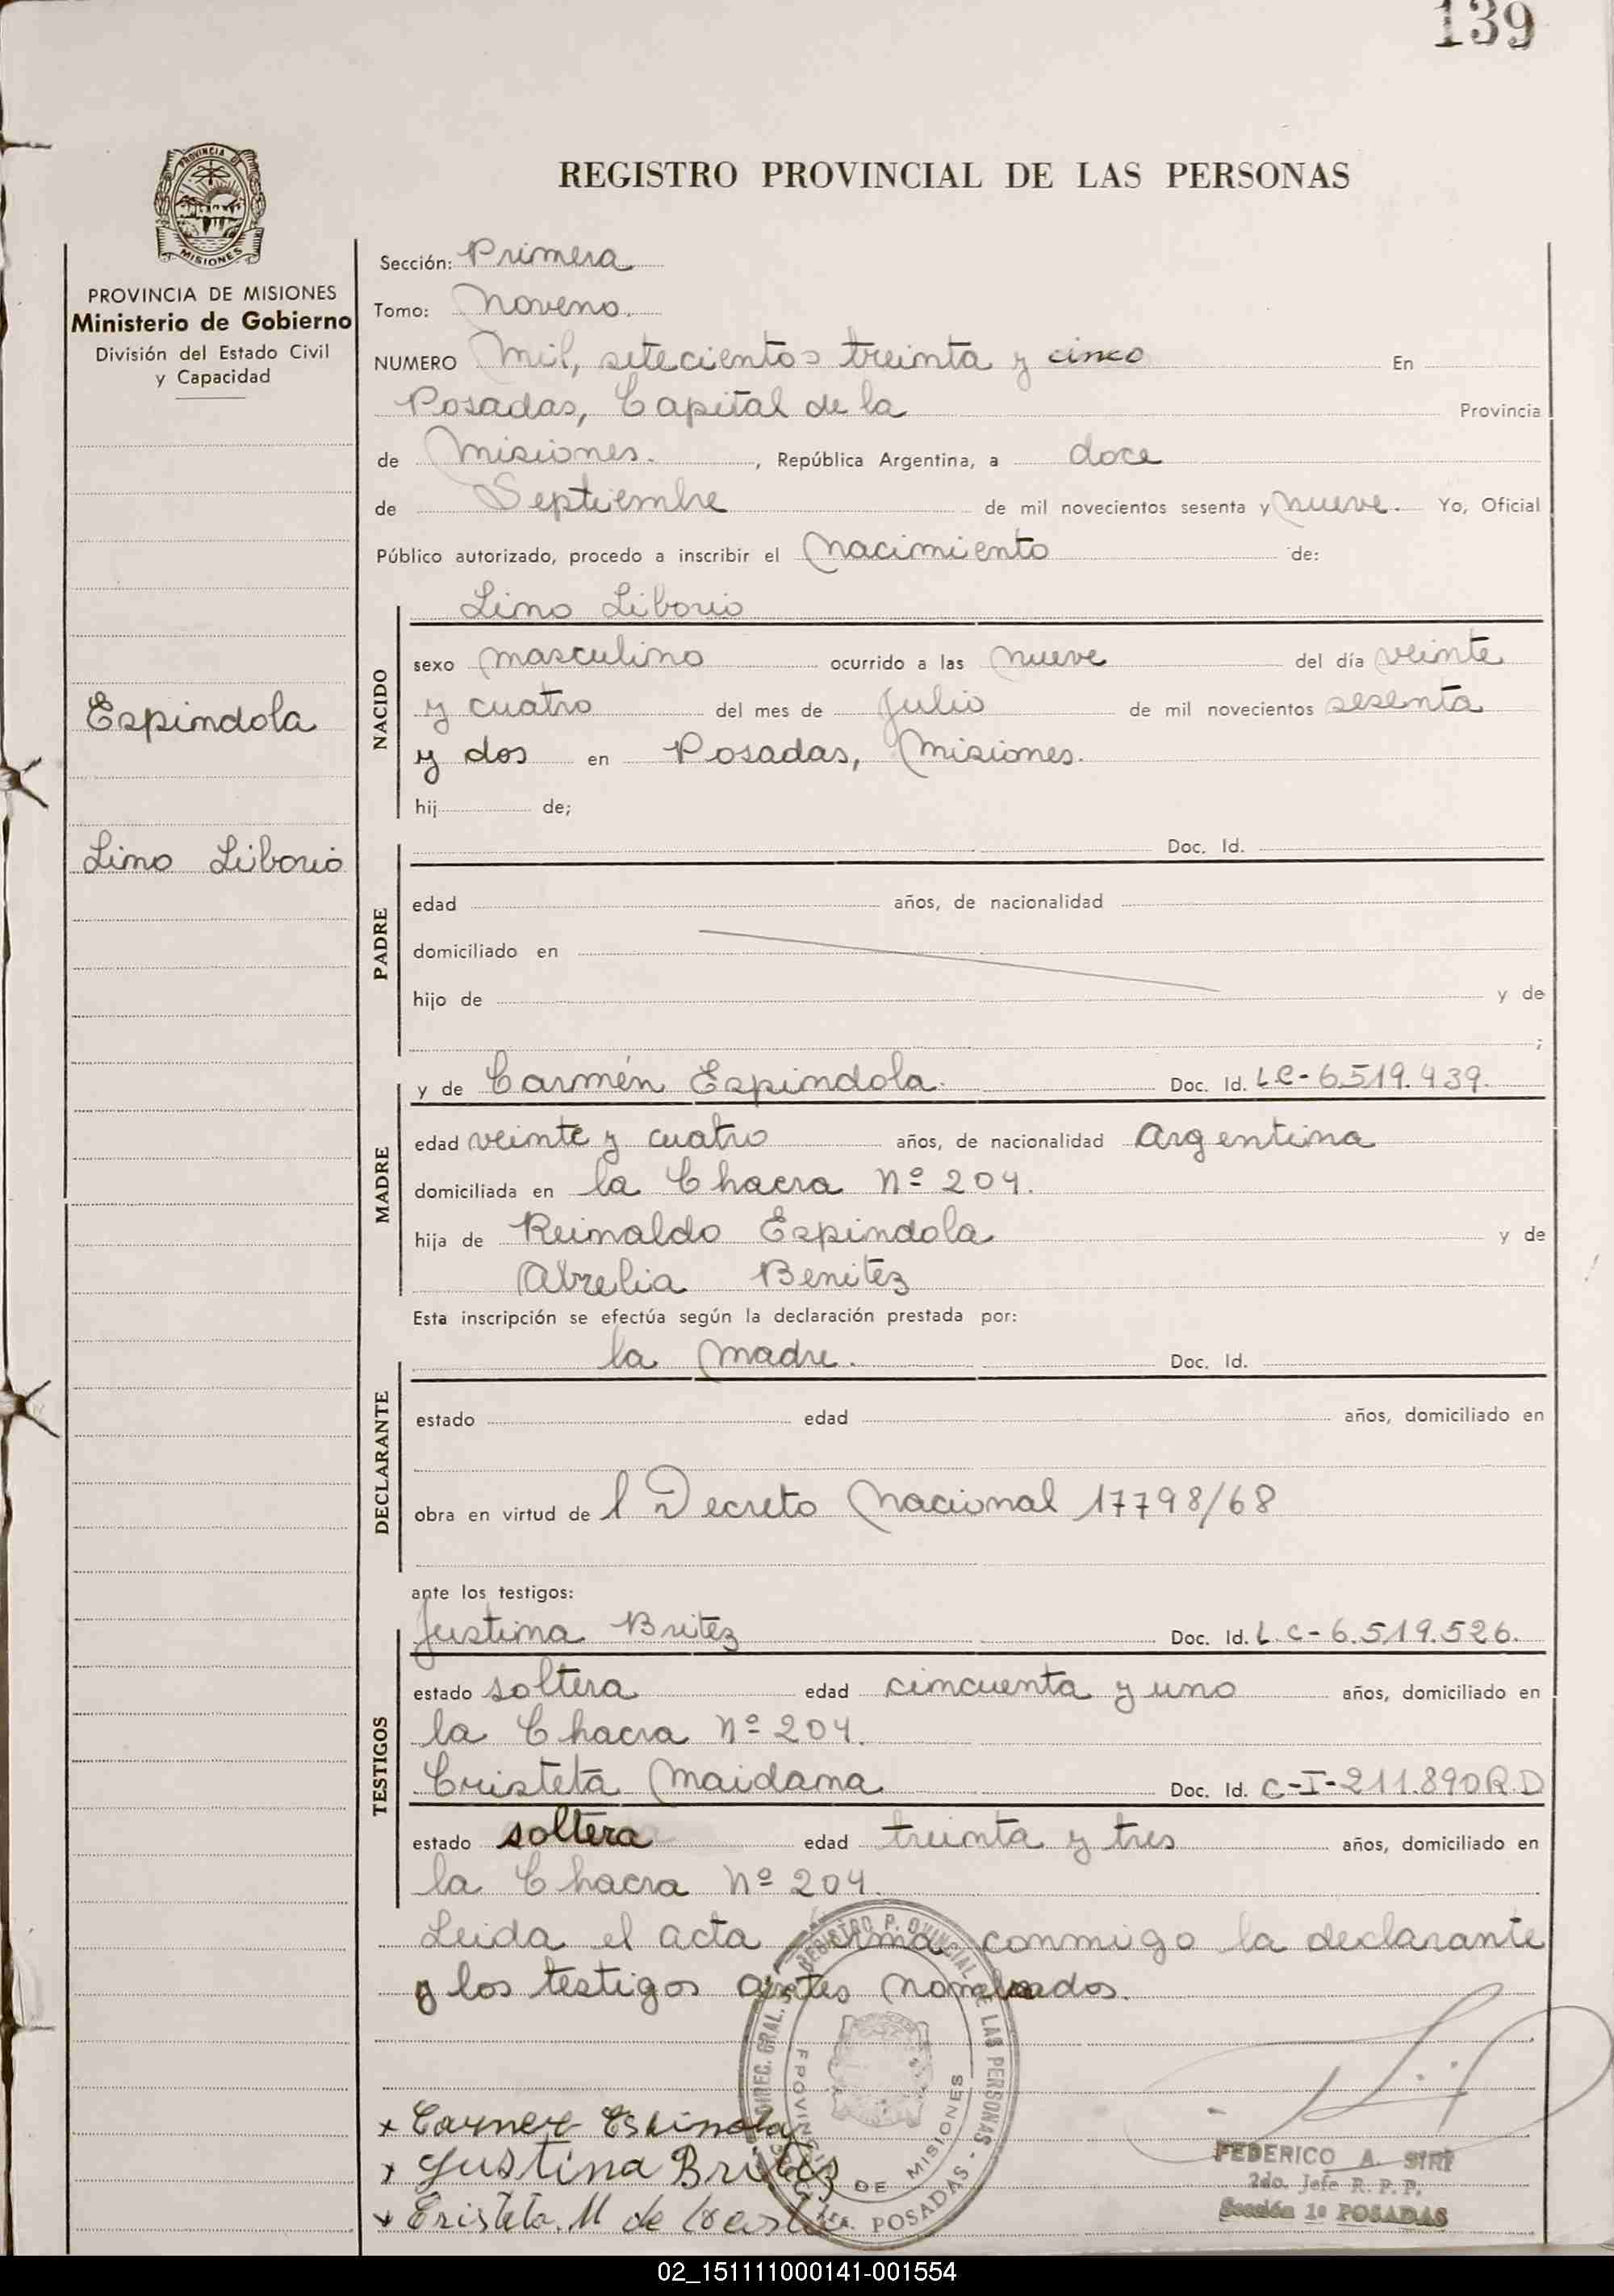 139
REGISTRO PROVINCIAL DE LAS PERSONAS
PROVINCIA DE MISIONES
Ministerio de Gobierno
División del Estado Civil
y Capacidad
Espindola
Lino Liborio
Sección: Primera
Tomo: Noveno.
NUMERO Mil, setecientos treinta y cinco En
Posadas, Capital de la Provincia
de Misiones. , República Argentina, a doce
de Septiembre de mil novecientos sesenta y nueve. Yo, Oficial
Público autorizado, procedo a inscribir el Nacimiento de:
Lino Liborio
NACIDO
sexo masculino ocurrido a las nueve del día veinte
y cuatro del mes de Julio de mil novecientos sesenta
y dos en Posadas, Misiones.
hij de;
Doc. Id.
PADRE
edad años, de nacionalidad
domiciliado en
hijo de y de
;
y de Carmén Espindola. Doc. Id. L.C-6.519.439.
MADRE
edad veinte y cuatro años, de nacionalidad Argentina
domiciliada en la Chacra Nº 204.
hija de Reinaldo Espindola y de
Benitez
Esta inscripción se efectúa según la declaración prestada por:
la Madre. Doc. Id.
DECLARANTE
estado edad años, domiciliado en
obra en virtud de l Decreto Nacional 17798/68
ante los testigos:
Justina Britez Doc. Id. L.C-6.519.526.
TESTIGOS
estado soltera edad cincuenta y uno años, domiciliado en
la Chacra Nº 204.
Cristeta Maidana Doc. Id. C-I-211.890R.D
estado soltera edad treinta y tres años, domiciliado en
la Chacra Nº 204.
Leida el acta firma conmigo la declarante
y los testigos antes nombrados.
x Carmen Espinola
x Justina Britez
x Cristeta. M de
FEDERICO A. SIRI
2do. Jefe R. P. P.
Sección 1º POSADAS
02_151111000141-001554